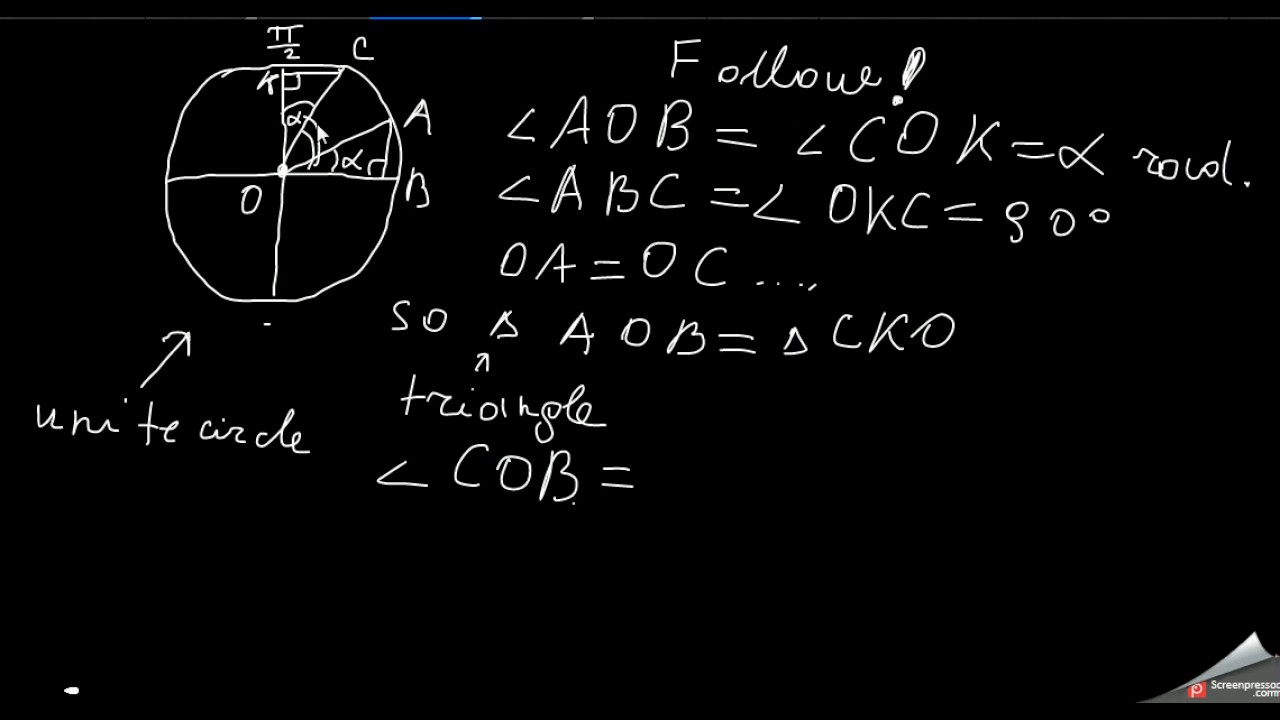 π/2
C
K
α
A
α
O
B
Follow!
∠AOB = ∠COK = α rad.
∠ABC = ∠OKC = 90°
OA = OC ....
so Δ AOB = Δ CKO
triangle
unite circle
∠COB =
Screenpresso
.com